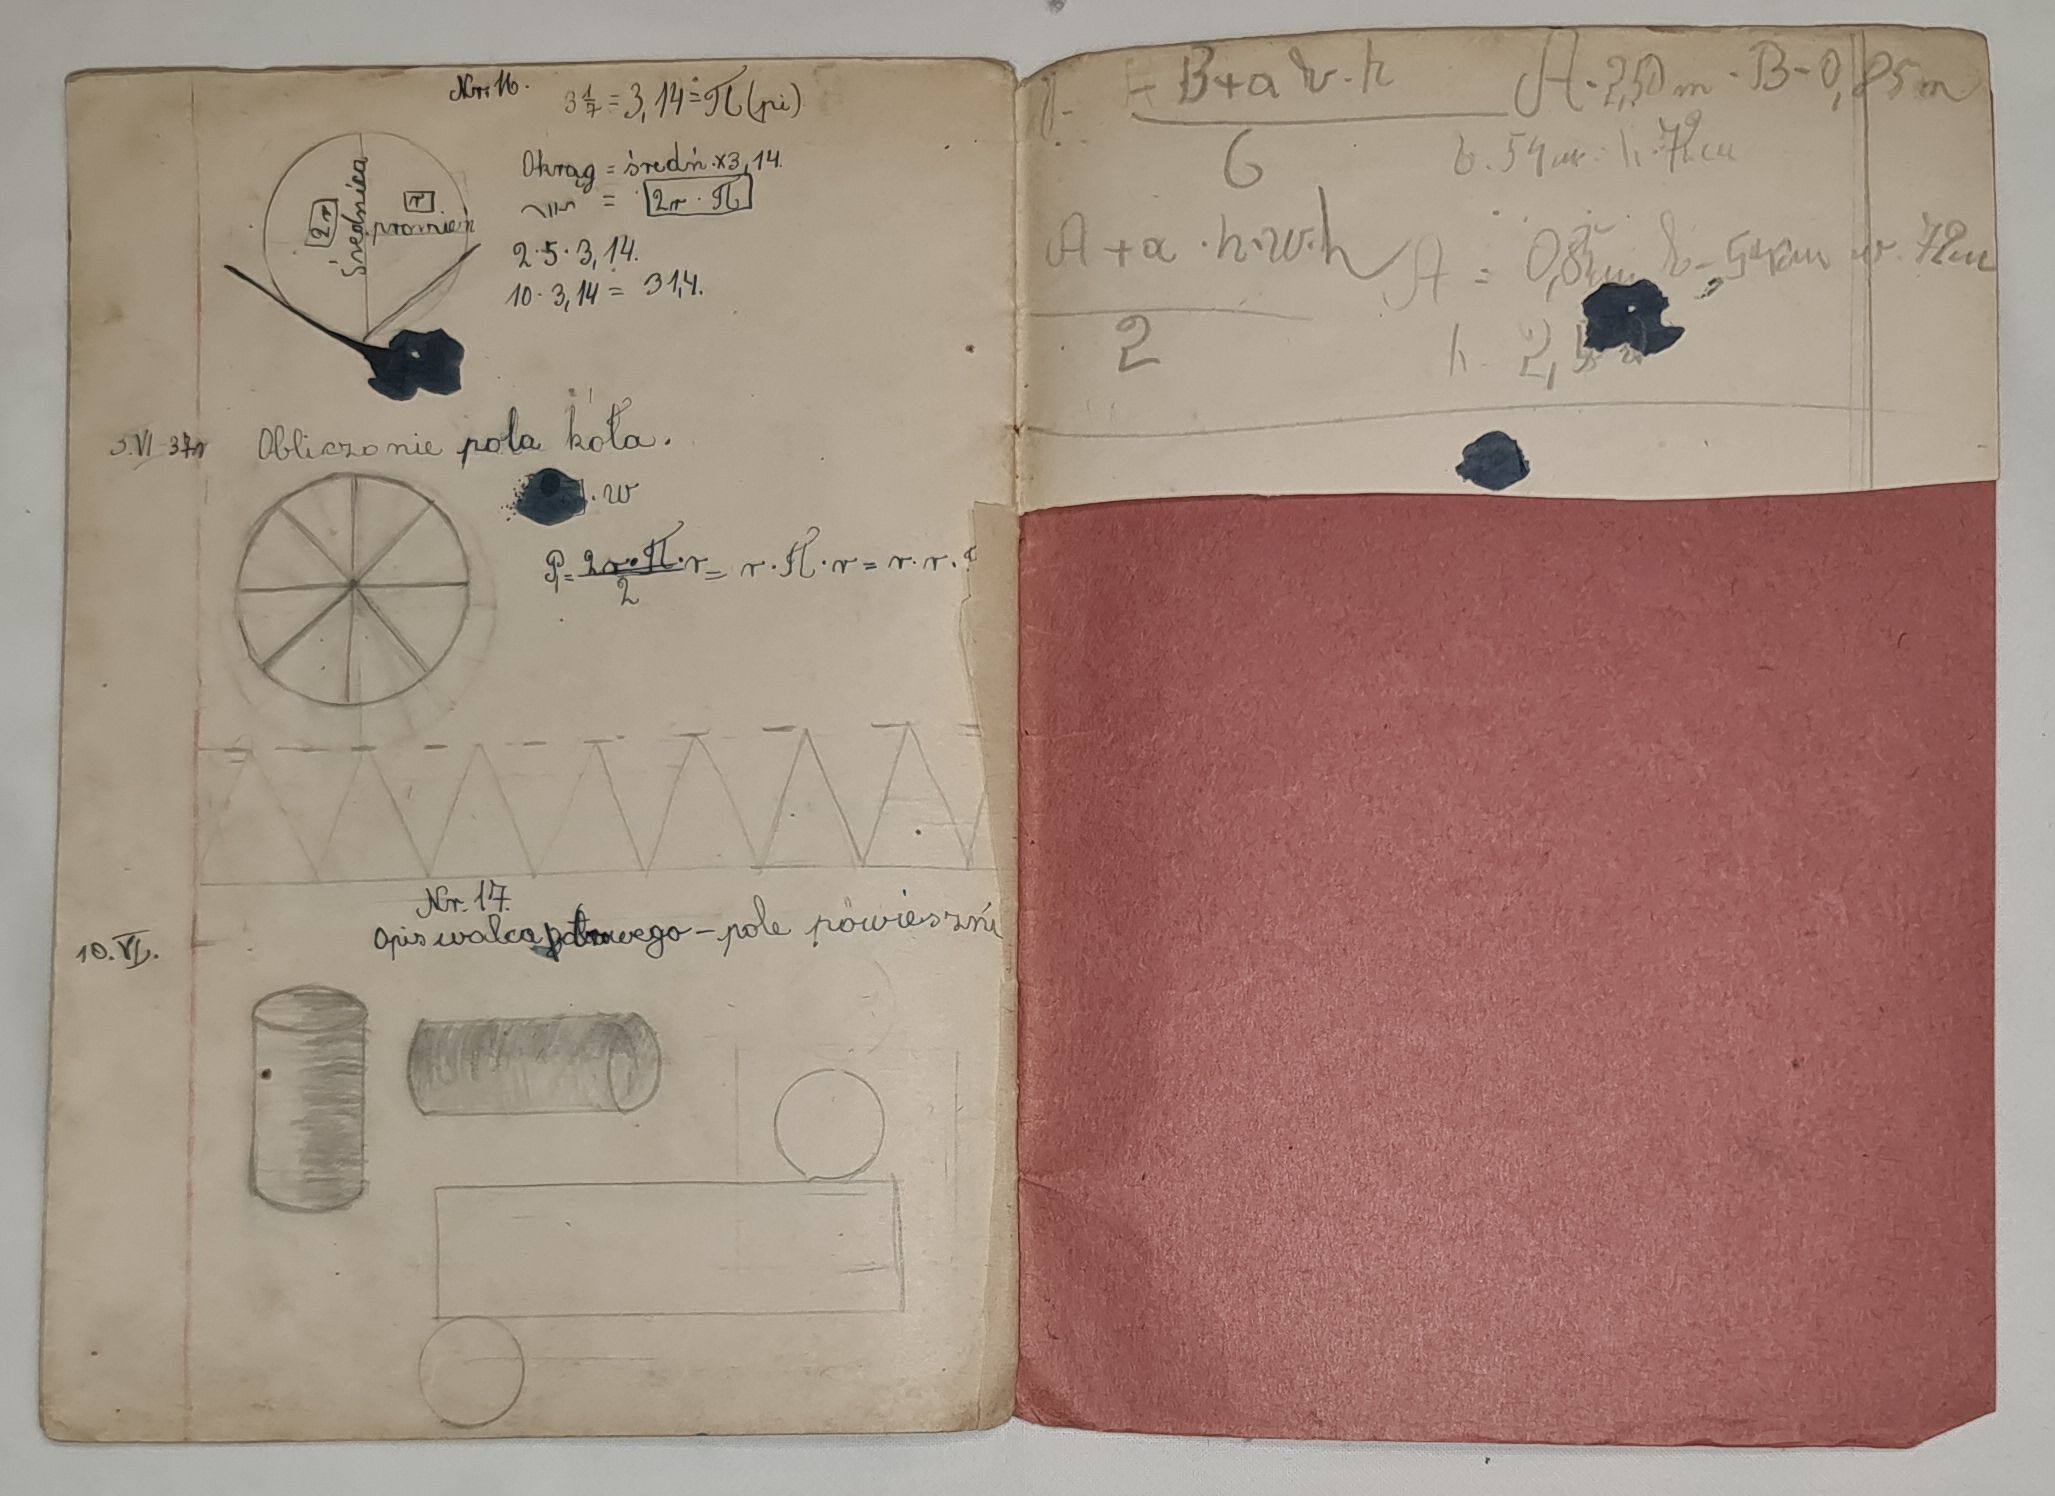 Nr. 16.
3 1/7 = 3,14 = π (pi)
Okrąg = średń. × 3,14.
= 2r · π
średnica
2r
r
promień
2·5·3,14.
10·3,14 = 31,4.
5.VI-37r Obliczanie pola koła.
· w
P = 2r·π·r / 2 = r·π·r = r·r·
Nr. 17.
10.VI. Opis walca – pole powieszni
B+a h
6
A · 2,50m · B - 0,85m
b. 54cm. h. 72cm
A + a · h·w·h
2
A = 54cm w. 72cm
h - 2,5